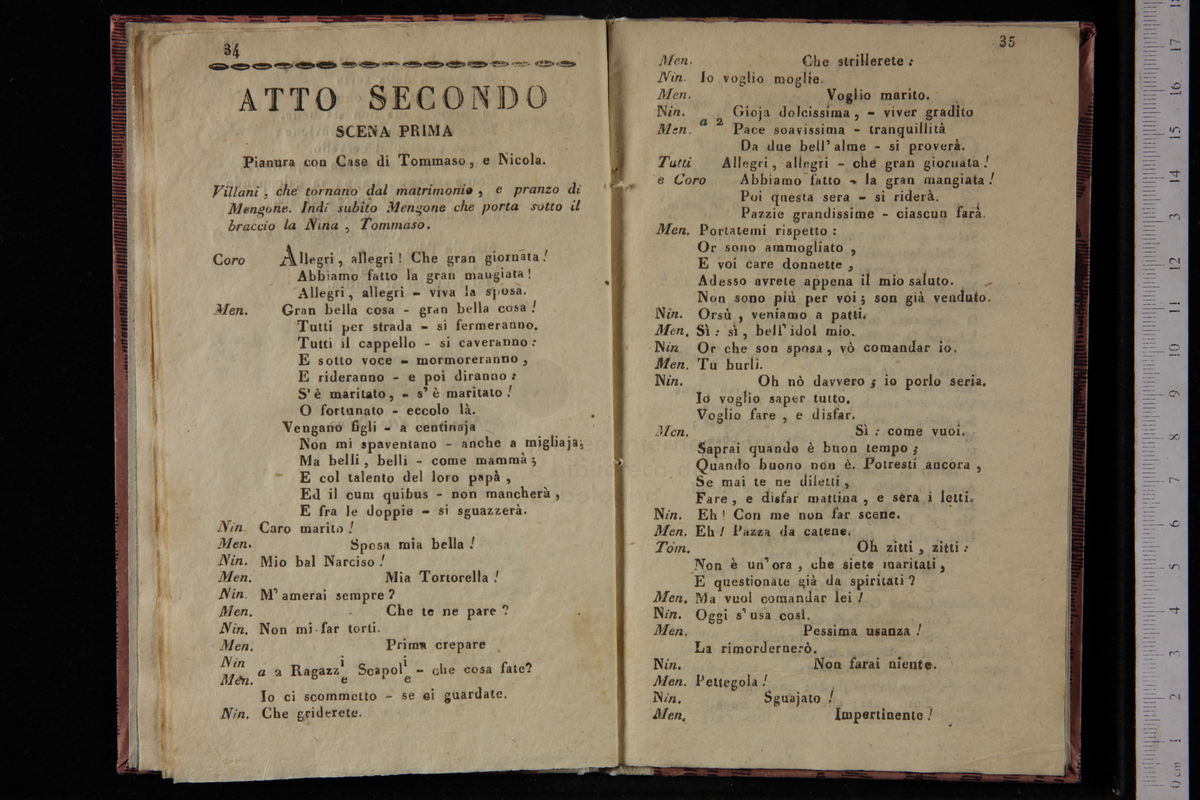 34
ATTO SECONDO
SCENA PRIMA
Pianura con Case di Tommaso, e Nicola.
Villani, che tornano dal matrimonio, e pranzo di
Mengone. Indi subito Mengone che porta sotto il
braccio la Nina, Tommaso.
Coro Allegri, allegri! Che gran giornata!
Abbiamo fatto la gran mangiata!
Allegri, allegri - viva la sposa.
Men. Gran bella cosa - gran bella cosa!
Tutti per strada - si fermeranno.
Tutti il cappello - si caveranno:
E sotto voce - mormoreranno,
E rideranno - e poi diranno:
S'è maritato, - s'è maritato!
O fortunato - eccolo là.
Vengano figli - a centinaja
Non mi spaventano - anche a migliaja;
Ma belli, belli - come mammà;
E col talento del loro papà,
Ed il cum quibus - non mancherà,
E fra le doppie - si sguazzerà.
Nin. Caro marito!
Men. Sposa mia bella!
Nin. Mio bal Narciso!
Men. Mia Tortorella!
Nin. M'amerai sempre?
Men. Che te ne pare?
Nin. Non mi far torti.
Men. Prima crepare
Nin
Men. a 2 Ragazz i e Scapol i e - che cosa fate?
Io ci scommetto - se ci guardate.
Nin. Che griderete.
35
Men. Che strillerete:
Nin. Io voglio moglie.
Men. Voglio marito.
Nin. Gioja dolcissima, - viver gradito
Men. a 2 Pace soavissima - tranquillità
Da due bell'alme - si proverà.
Tutti Allegri, allegri - che gran giornata!
e Coro Abbiamo fatto - la gran mangiata!
Poi questa sera - si riderà.
Pazzie grandissime - ciascun farà.
Men. Portatemi rispetto:
Or sono ammogliato,
E voi care donnette,
Adesso avrete appena il mio saluto.
Non sono più per voi; son già venduto.
Nin. Orsù, veniamo a patti.
Men. Sì: sì, bell'idol mio.
Nin Or che son sposa, vò comandar io.
Men. Tu burli.
Nin. Oh nò davvero; io porlo seria.
Io voglio saper tutto.
Voglio fare, e disfar.
Men. Sì: come vuoi.
Saprai quando è buon tempo;
Quando buono non è. Potresti ancora,
Se mai te ne diletti,
Fare, e disfar mattina, e sera i letti.
Nin. Eh! Con me non far scene.
Men. Eh! Pazza da catene.
Tom. Oh zitti, zitti:
Non è un'ora, che siete maritati,
E questionate già da spiritati?
Men. Ma vuol comandar lei!
Nin. Oggi s'usa così.
Men. Pessima usanza!
La rimordernerò.
Nin. Non farai niente.
Men. Pettegola!
Nin. Sguajato!
Men. Impertinente!